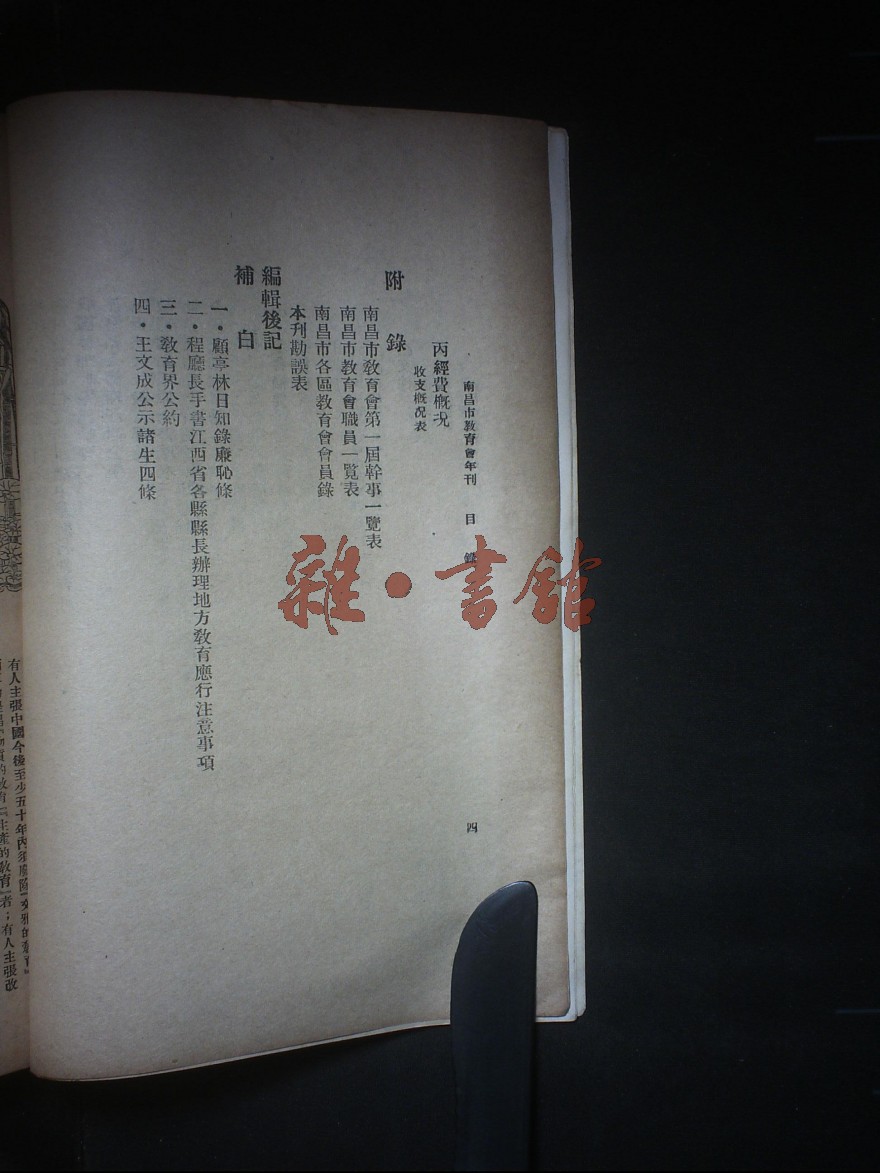 南昌市教育會年刊 目錄 四
丙經費概况
收支概况表
附錄
南昌市教育會第一屆幹事一覽表
南昌市教育會職員一覽表
南昌市各區教育會會員錄
本刊勘誤表
編輯後記
補白
一・顧亭林日知錄廉恥條
二・程廳長手書江西省各縣縣長辦理地方教育應行注意事項
三・教育界公約
四・王文成公示諸生四條
雜・書館
有人主張中國今後至少五十年內須廢除『文雅的教育』
質的教育『生產的教育』者；有人主張改